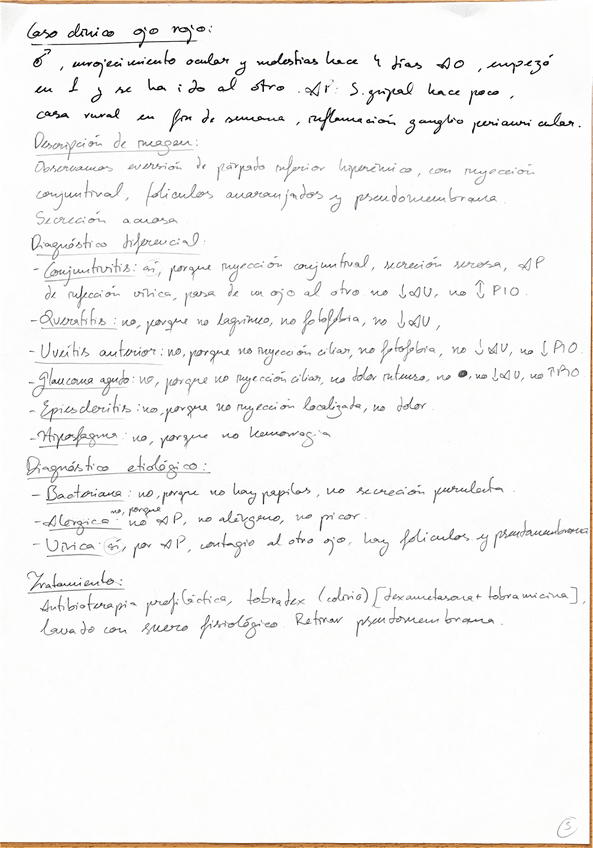 Caso clínico ojo rojo:
♂, enrojecimiento ocular y molestias hace 4 días AO, empezó
en 1 y se ha ido al otro. AP: S. gripal hace poco,
casa rural en fin de semana, inflamación ganglio periauricular.
Descripción de imagen:
Observamos eversión de párpado inferior hiperémico, con inyección
conjuntival, folículos anaranjados y pseudomembrana.
Secreción acuosa
Diagnóstico diferencial:
- Conjuntivitis: sí, porque inyección conjuntival, secreción serosa, AP
de infección vírica, pasa de un ojo al otro no ↓AV, no ↑PIO.
- Queratitis: no, porque no lagrimeo, no fotofobia, no ↓AV,
- Uveítis anterior: no, porque no inyección ciliar, no fotofobia, no ↓AV, no ↓PIO.
- Glaucoma agudo: no, porque no inyección ciliar, no dolor intenso, no ↓AV, no ↑PIO
- Epiescleritis: no, porque no inyección localizada, no dolor.
- Hiposfagma: no, porque no hemorragia
Diagnóstico etiológico:
- Bacteriana: no, porque no hay papilas, no secreción purulenta.
- Alérgica: no, porque no AP, no alérgeno, no picor.
- Vírica: sí, por AP, contagio al otro ojo, hay folículos y pseudomembrana
Tratamiento:
Antibioterapia profiláctica, tobradex (colirio) [dexametasona + tobramicina],
lavado con suero fisiológico. Retirar pseudomembrana.
5